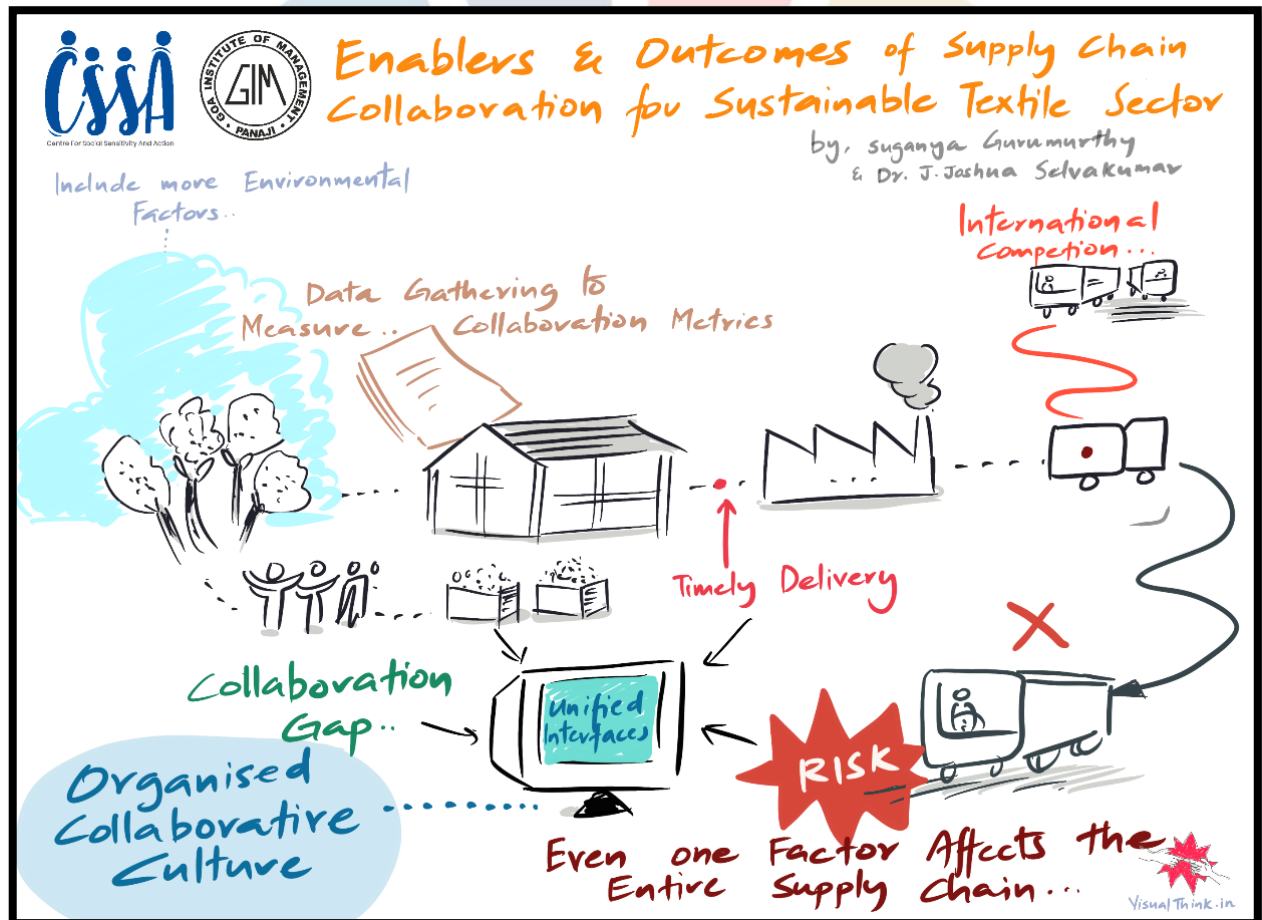 CSSA
Centre For Social Sensitivity And Action
GOA INSTITUTE OF MANAGEMENT
GIM
PANAJI
Enablers & Outcomes of Supply Chain
Collaboration for Sustainable Textile Sector
by, Suganya Gurumurthy
& Dr. J. Joshua Selvakumar
Include more Environmental
Factors..
International
Competion...
Data Gathering to
Measure.. Collaboration Metrics
Timely Delivery
Collaboration
Gap..
Unified
Interfaces
RISK
Organised
Collaborative
Culture
Even one Factor Affects the
Entire Supply Chain...
VisualThink.in